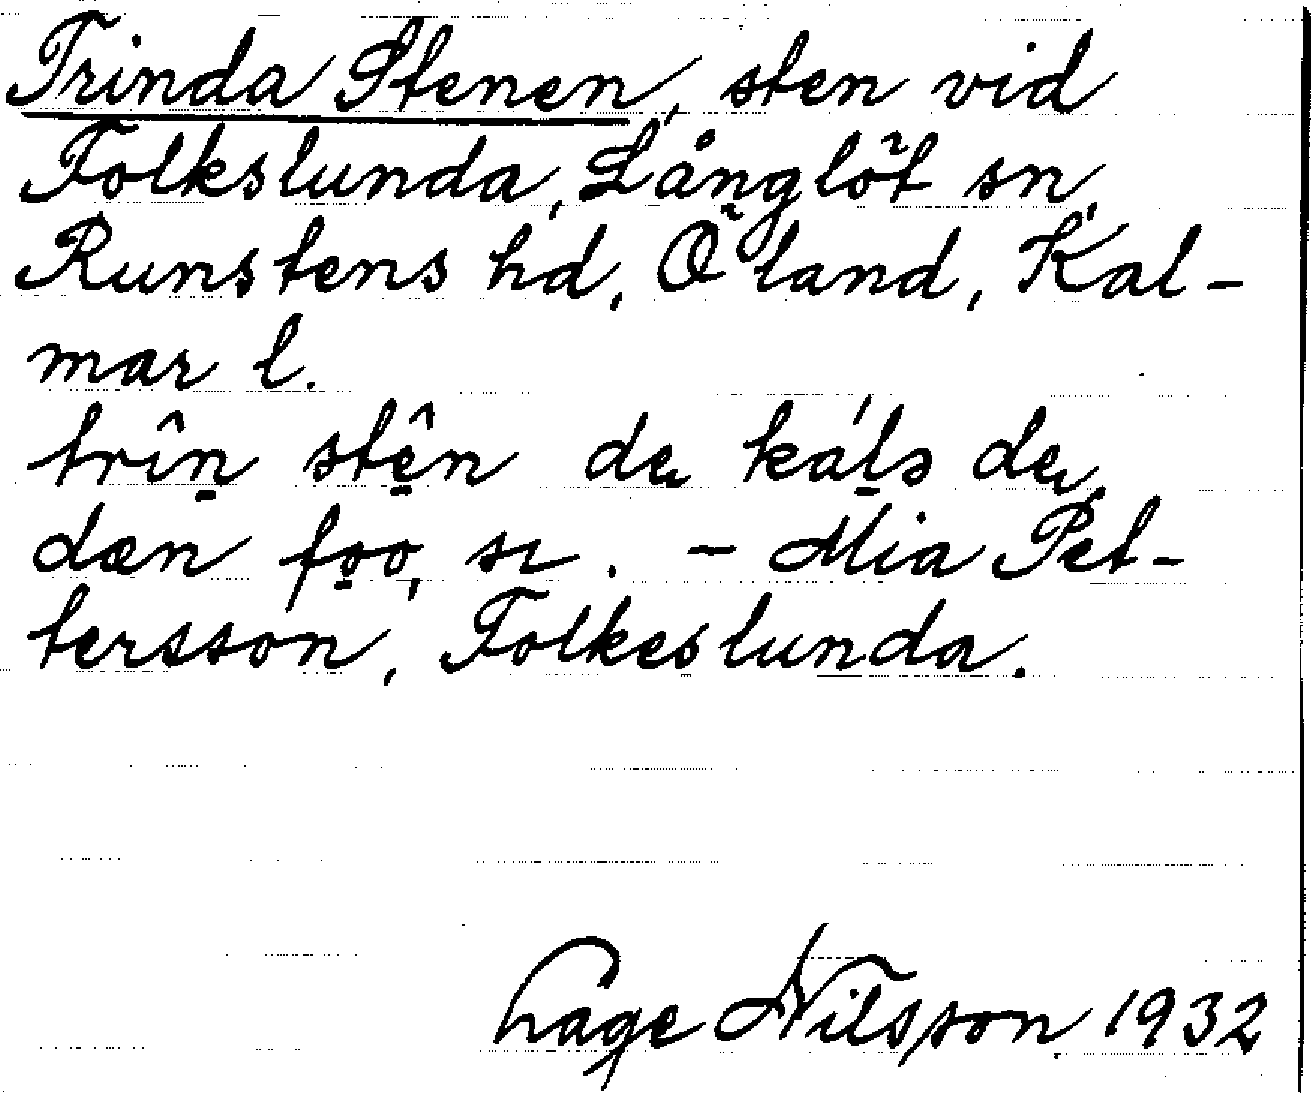 Trinda Stenen, sten vid
Folkslunda, Långlöt sn,
Runstens hd, Öland, Kal-
mar l.
trîn stên de káls de
dæn foo, sı. - Mia Pet-
tersson, Folkeslunda.
Hage Nilsson 1932